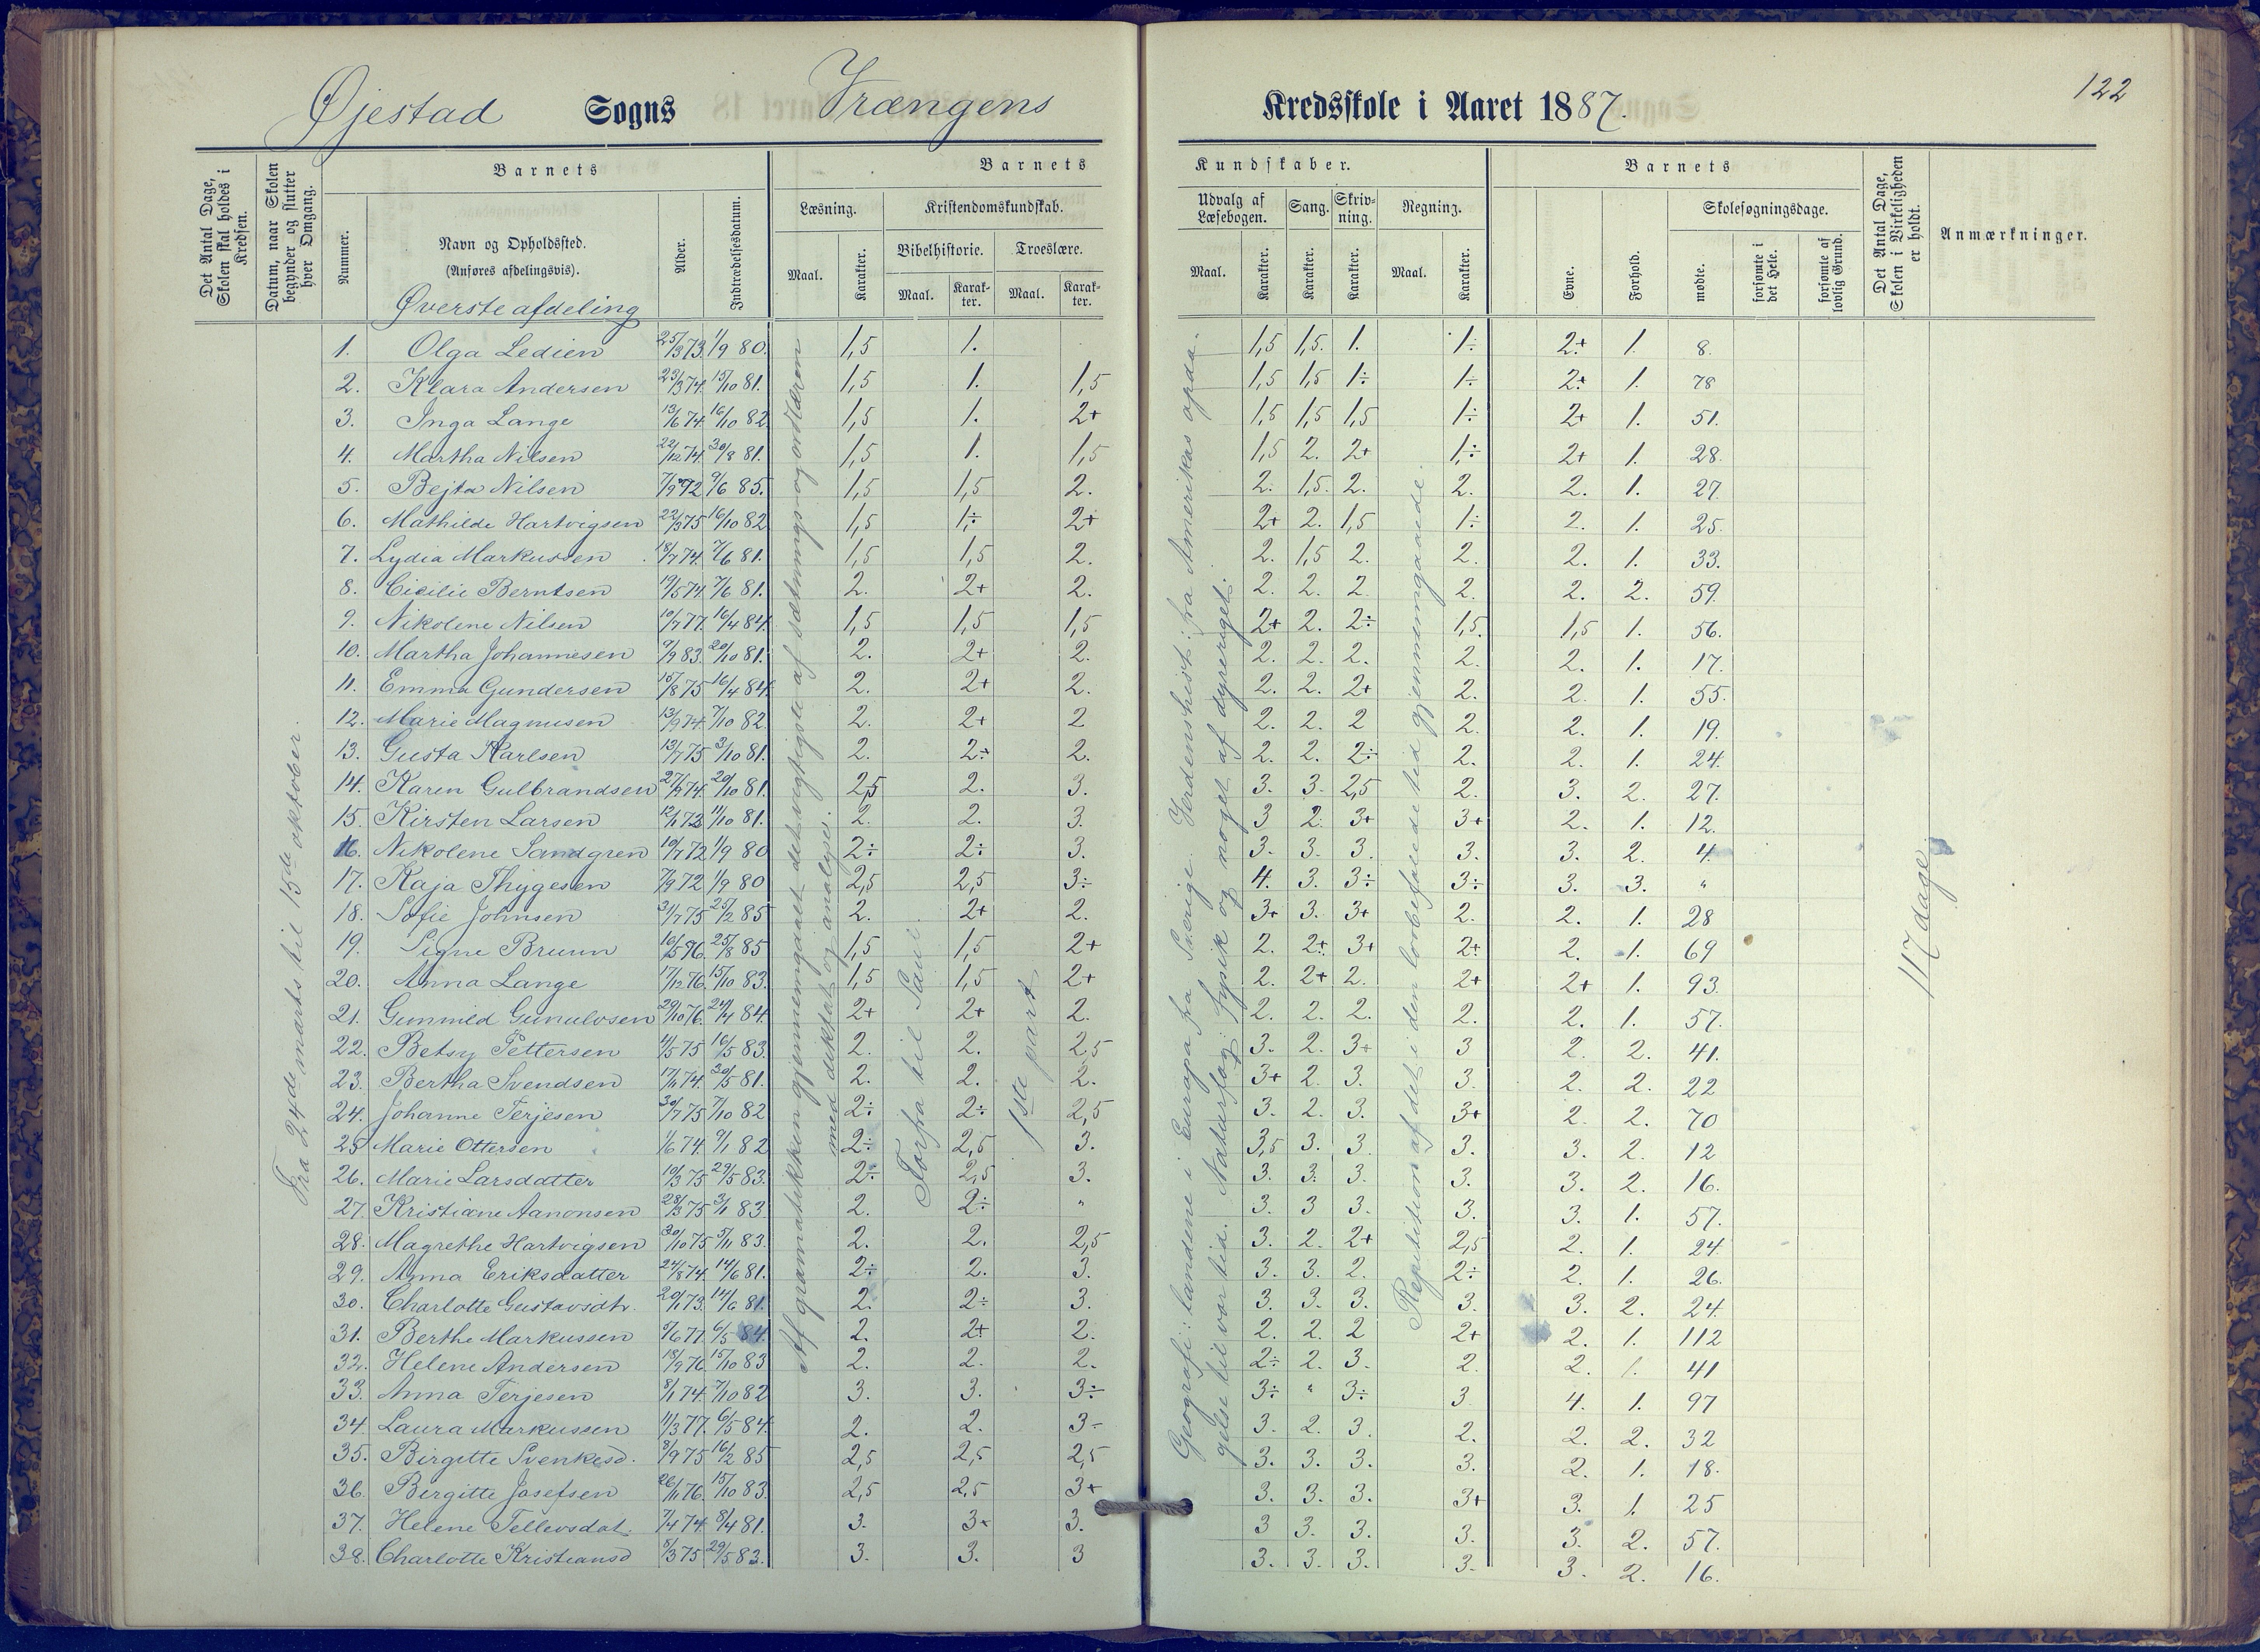 122
Øjestad Sogns Vrængens Kredsskole i Aaret 1887.
Det Antal Dage, Skolen skal holdes i Kredsen.
Datum, naar Skolen begynder og slutter hver Omgang.
Barnets
Nummer.
Navn og Opholdssted.
(Anføres afdelingsvis).
Øverste afdeling
Alder.
Indtrædelsesdatum.
Barnets Kundskaber.
Læsning.
Maal. Karakter.
Kristendomskundskab.
Bibelhistorie. Troeslære.
Maal. Karakter. Maal. Karakter.
Udvalg af Læsebogen. Sang. Skrivning. Regning.
Maal. Karakter. Karakter. Karakter. Maal. Karakter.
Barnets
Evne. Forhold.
Skolesøgningsdage.
mødte. forsømte i det Hele. forsømte af lovlig Grund.
Det Antal Dage, Skolen i Virkeligheden er holdt.
Anmærkninger.
Fra 24de marts til 15de oktober.
Af gramatikken gjennemgaaet det vigtigste af sætnings og ordlæren
med diktat og analyse.
Forfra til Saul.
1ste part
Geografi: landene i Europa fra Sverige. Verdenshist: fra Amerikas opda-
gelse til vor tid. Naturfag: fysik og noget af dyreriget.
Repetition af det i den lovbefalede tid gjennemgaaede.
117 dage
1. Olga Ledien 25/3 73. 1/9 80. 1,5 1. 1,5 1,5. 1. 1÷ 2+ 1. 8.
2. Klara Andersen 23/3 74. 15/10 81. 1,5 1. 1,5 1,5 1,5 1÷ 1÷ 2+ 1. 78
3. Inga Lange 13/6 74. 16/10 82. 1,5 1. 2+ 1,5 1,5 1,5 1÷ 2+ 1. 51.
4. Martha Nilsen 22/12 74. 30/8 81. 1,5 1. 1,5 1,5 2. 2+ 1÷ 2+ 1. 28.
5. Bejta Nilsen 7/9 72 9/6 85. 1,5 1,5 2. 2. 1,5. 2. 2. 2. 1. 27.
6. Mathilde Hartvigsen 22/3 75 16/10 82 1,5 1÷ 2+ 2+ 2. 1,5 1÷ 2. 1. 25.
7. Lydia Markussen 18/7 74. 7/6 81. 1,5 1,5 2. 2. 1,5 2. 2. 2. 1. 33.
8. Cicilie Berntsen 19/5 74. 7/6 81. 2. 2+ 2. 2. 2. 2. 2. 2. 2. 59.
9. Nikoline Nilsen 10/7 77. 16/4 84. 1,5 1,5 1,5 2+ 2. 2÷ 1,5. 1,5 1. 56.
10. Martha Johannesen 9/9 83. 20/10 81. 2. 2+ 2. 2. 2. 2. 2. 2. 1. 17.
11. Emma Gundersen 15/8 75 16/4 84. 2. 2+ 2. 2. 2. 2+ 2. 2. 1. 55.
12. Marie Magnusen 13/9 74. 7/10 82. 2. 2+ 2 2. 2. 2 2. 2. 1. 19.
13. Gusta Karlsen 13/7 75 3/10 81. 2. 2÷ 2. 2. 2. 2÷ 2. 2. 1. 24.
14. Karen Gulbrandsen 27/9 74. 20/10 81. 2,5 2. 3. 3. 3. 2,5 2. 3. 2. 27.
15. Kirsten Larsen 12/1 73 11/10 81. 2. 2. 3. 3 2. 3+ 3+ 2. 1. 12.
16. Nikolene Sandgren 10/7 72 1/9 80 2÷ 2÷ 3. 3. 3. 3. 3. 3. 2. 4.
17. Kaja Thygesen 7/9 72 1/9 80 2,5 2,5 3÷ 4. 3. 3÷ 3÷ 3. 3. "
18. Sofie Johnsen 31/7 75 25/2 85 2. 2+ 2. 3+ 3. 3+ 2. 2. 1. 28
19. Signe Bruun 16/5 76. 25/8 85 1,5 1,5 2+ 2. 2+ 3+ 2+ 2. 1. 69
20. Anna Lange 17/12 76. 15/10 83. 1,5 1,5 2+ 2. 2+ 2. 2+ 2+ 1. 93.
21. Gunnild Gunulvsen 29/10 76. 24/4 84. 2+ 2+ 2. 2. 2. 2. 2. 2. 1. 57.
22. Betsy Pettersen 4/5 75 16/5 83. 2. 2. 2,5 3. 2. 3+ 3 2. 2. 41.
23. Bertha Svendsen 17/1 74. 30/5 81. 2. 2. 2. 3+ 2. 3. 3. 2. 2. 22
24. Johanne Terjesen 30/7 75 7/10 82 2÷ 2÷ 2,5 3. 2. 3. 3+ 2. 2. 70
25 Marie Ottersen 1/6 74. 9/1 82 2÷ 2,5 3. 3,5 3. 3. 3. 3. 2. 12
26. Marie Larsdatter 10/3 75 29/5 83. 2÷ 2,5 3. 3. 3. 3. 3. 3. 2. 16.
27. Kristiane Aanonsen 28/3 75 3/1 83. 2. 2÷ " 3. 3 3. 3. 3. 1. 57.
28. Magrethe Hartvigsen 30/10 75 5/11 83. 2. 2. 2,5 3. 2. 2+ 2,5 2. 1. 24.
29. Anna Eriksdatter 24/8 74. 14/6 81. 2÷ 2. 3. 3. 3. 2. 2÷ 2. 1. 26.
30. Charlotte Gustavsdtr. 20/1 73. 14/6 81. 2. 2÷ 3. 3. 3. 3. 3. 3. 2. 24.
31. Berthe Markussen 5/6 77. 6/5 84. 2. 2+ 2. 2. 2. 2 2+ 2. 1. 112
32. Helene Andersen 18/9 76. 15/10 83 2. 2. 2. 2÷ 2. 3. 2. 2. 1. 41
33. Anna Terjesen 8/1 74. 7/10 82 3. 3. 3÷ 3÷ " 3÷ 3 4. 1. 97
34. Laura Markussen 11/3 77. 6/5 84. 2. 2. 3÷ 3. 2. 3. 2. 2. 2. 32
35. Birgitte Svenkesd. 3/9 75 16/2 85 2,5 2,5 2,5 3. 3. 3. 3. 2. 1. 18.
36. Birgitte Josefsen 26/1 76. 15/10 83. 2,5 2,5 3+ 3. 3. 3. 3+ 3. 1. 25
37. Helene Tellevsdat. 7/4 74. 8/4 81. 3. 3+ 3. 3 3. 3. 3. 3. 2. 57.
38. Charlotte Kristiansd 5/3 75 29/5 83. 3. 3. 3 3. 3. 3. 3. 3. 2. 16.